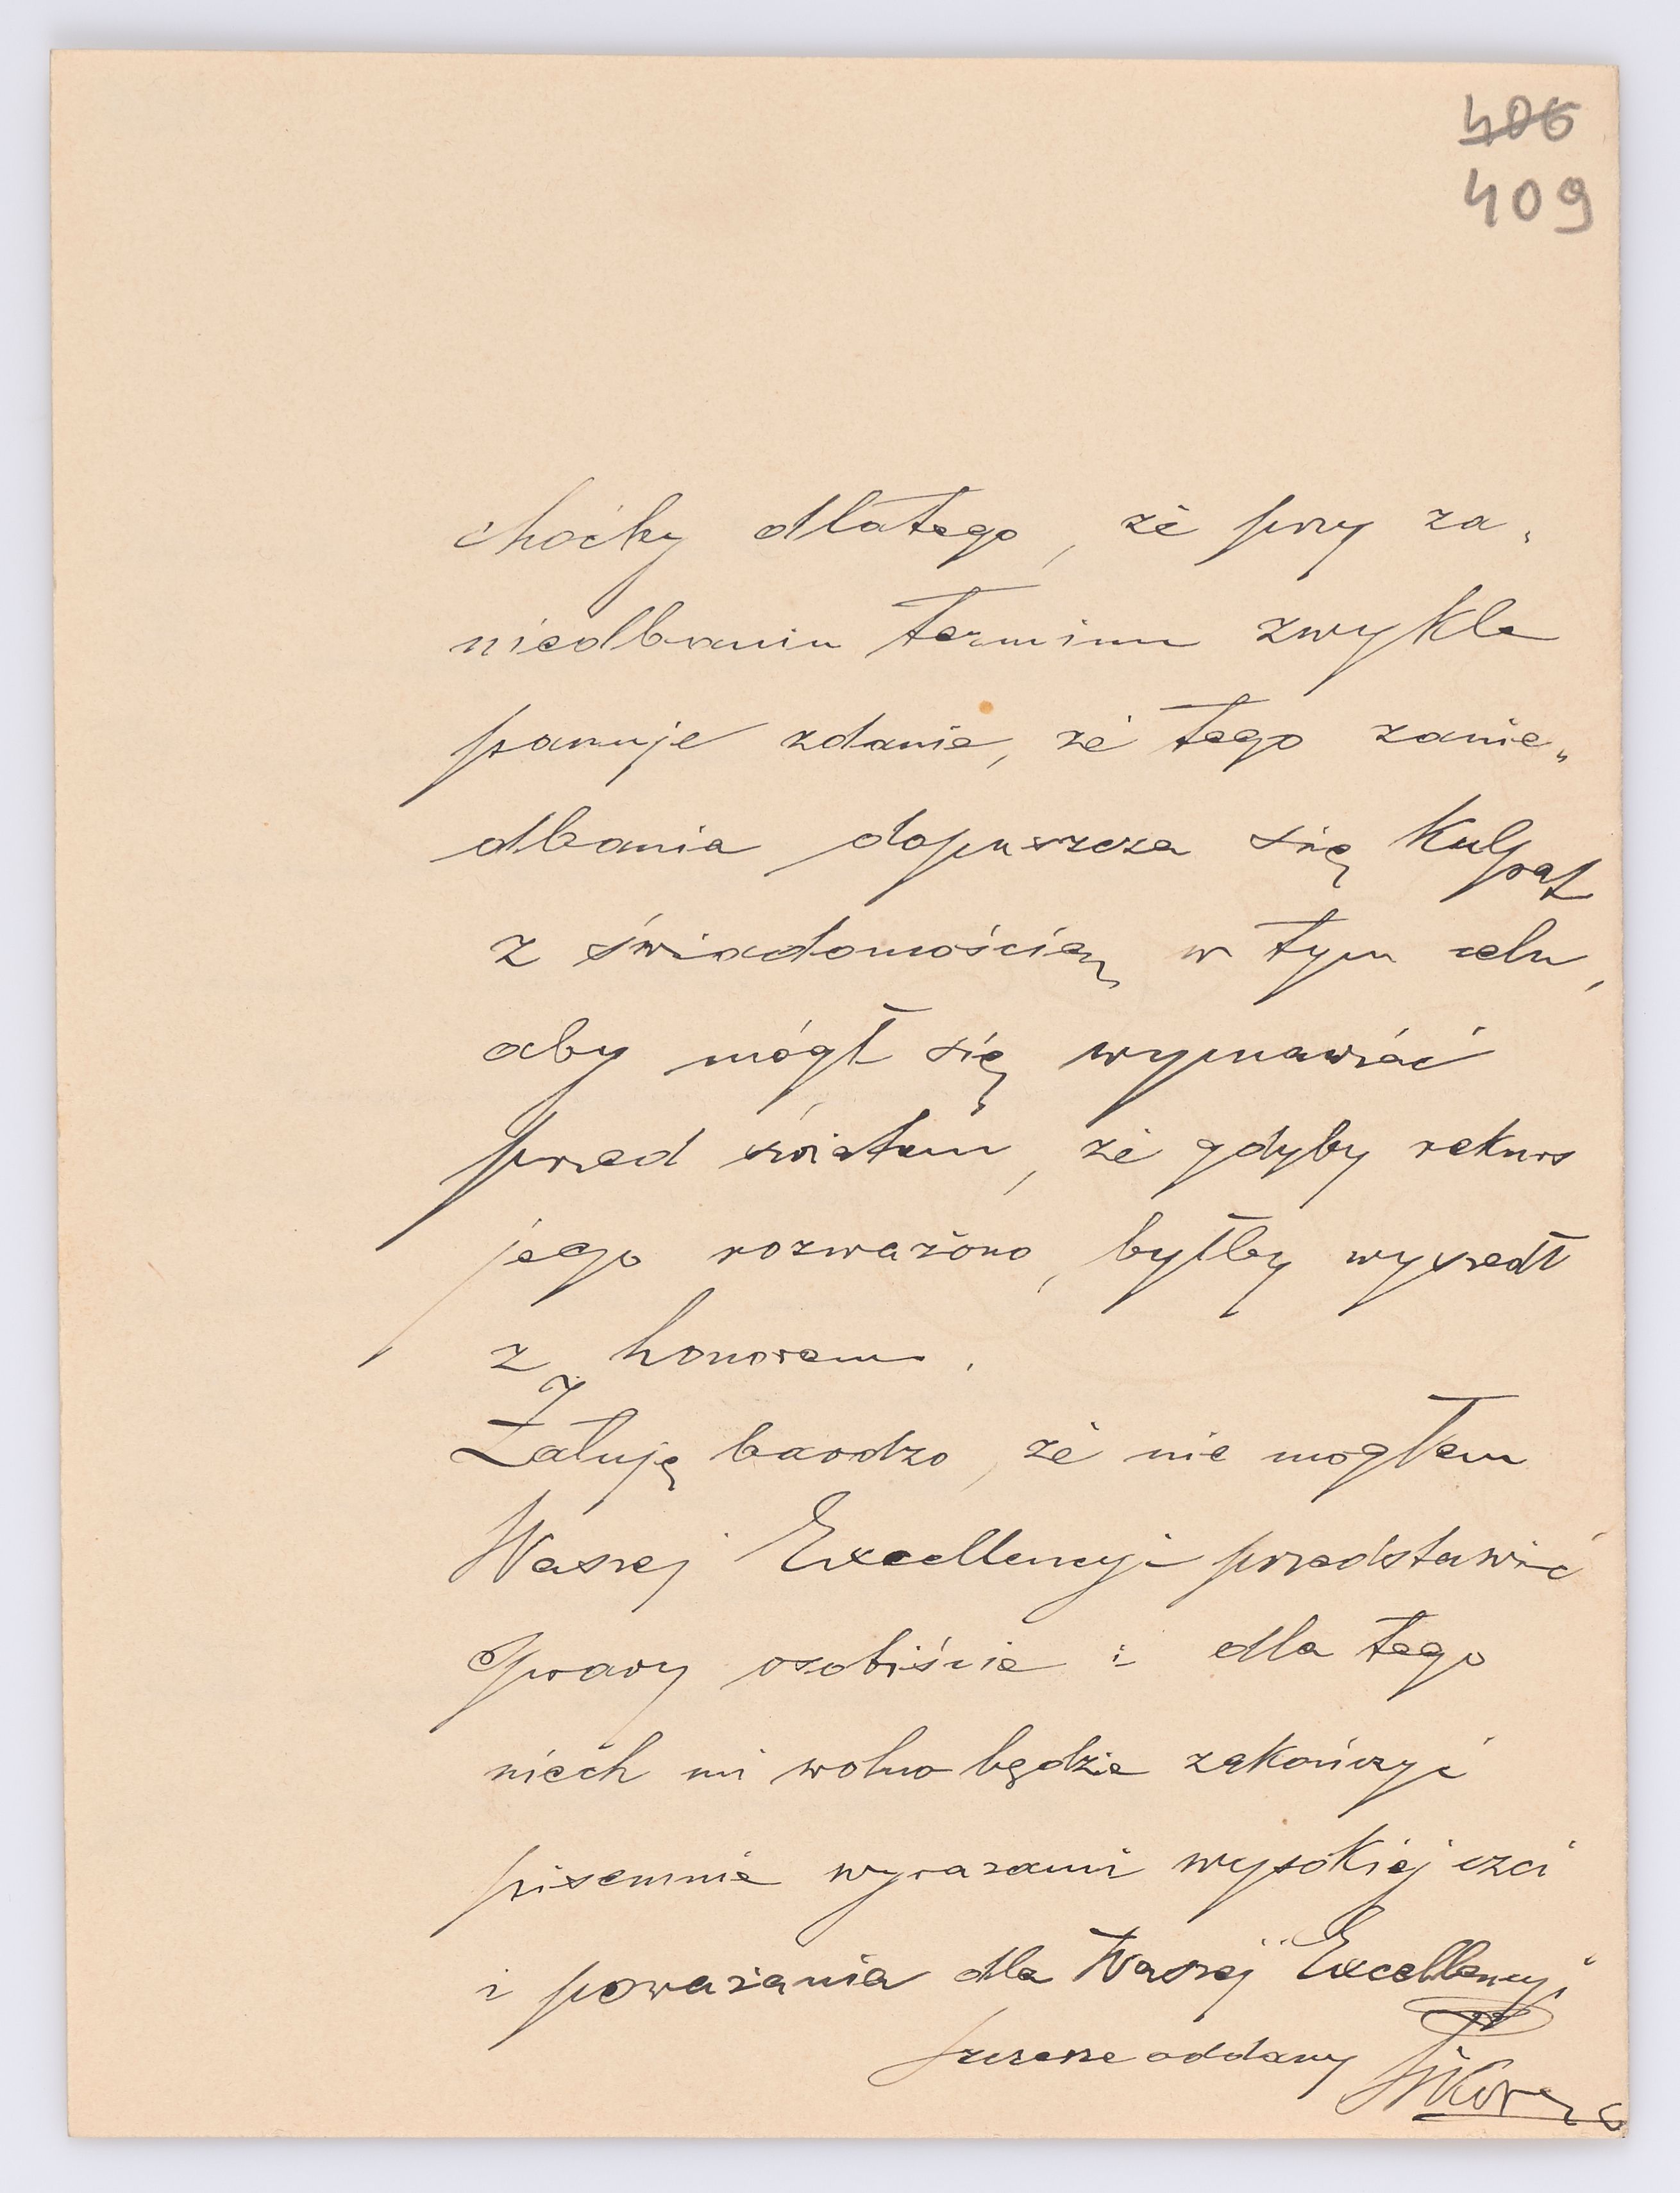 406
409
choćby dlatego, że przy za„
niedbaniu terminu zwykle
panuje zdanie, że tego zanie„
dbania dopuszcza się kulprat
z świadomością w tym celu,
aby mógł się wymawiać
przed światem, że gdyby rekurs
jego rozważono, byłby wyszedł
z honorem.
Żałuję bardzo, że nie mogłem
Waszej Excellencyi przedstawić
sprawy osobiście i dla tego
niech mi wolno będzie zakończyć
pisemnie wyrazami wysokiej czci
i poważania dla Waszej Excellencyi
szczerze oddany